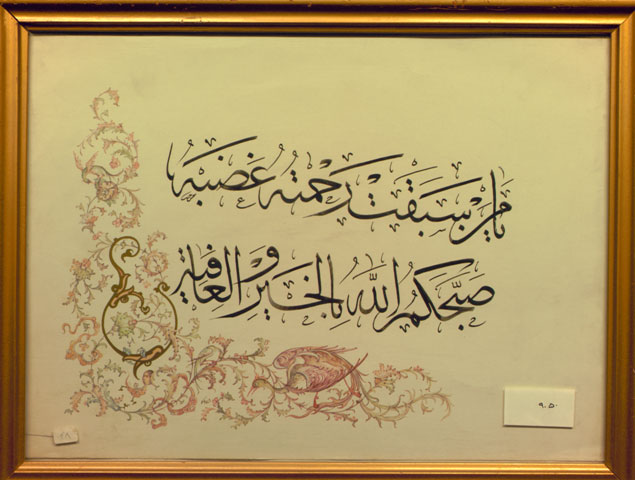 يا من سَبَقَت رَحْمَتهُ غَضَبَهُ
صَبَّحَكُم اللّٰه بِالخَيرِ وَ العافِيَة
٩٠٥٠